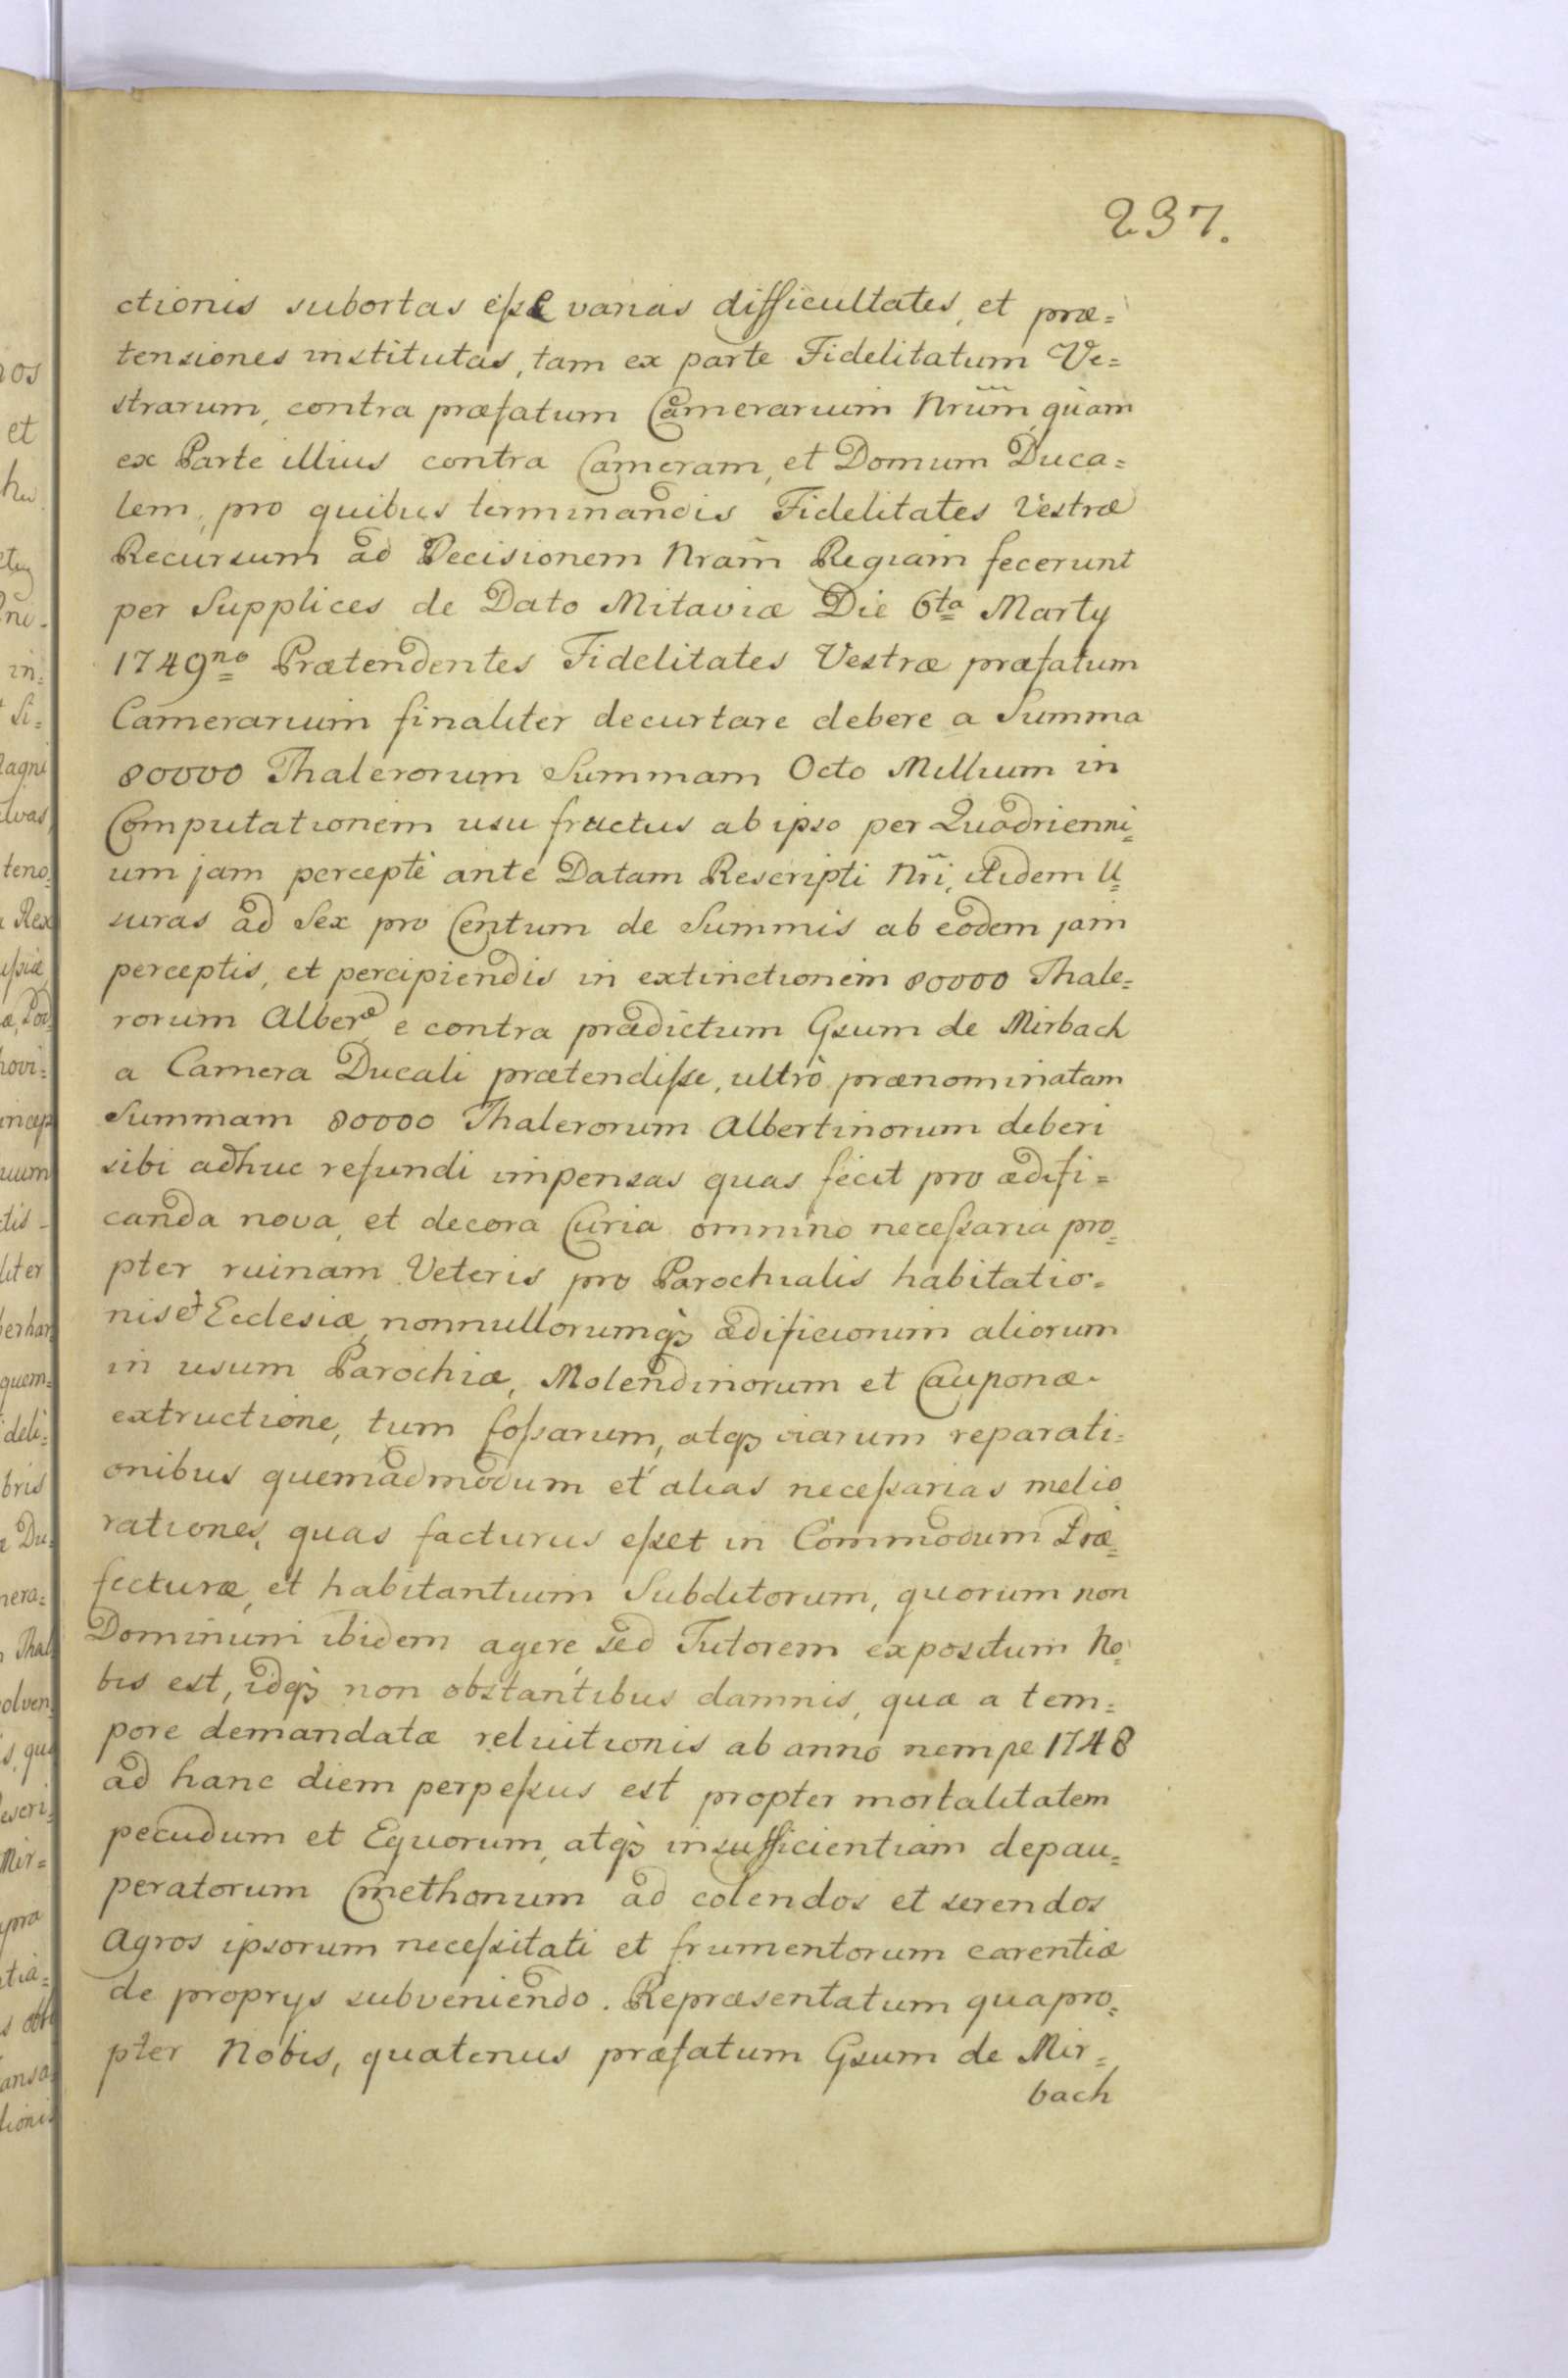 237.
ctionis subortas esse varias difficultates, et præ=
tensiones institutas, tam ex parte Fidelitatum Ve=
strarum, contra præfatum Camerarium Nrum, quam
ex Parte illius contra Cameram, et Domum Duca=
lem, pro quibus terminandis Fidelitates Vestræ
Recursum ad Decisionem Nram Regiam fecerunt
per Supplices de Dato Mitaviæ Die 6ta Marty
1749no Prætendentes Fidelitates Vestræ præfatum
Camerarium finaliter decurtare debere a Summa
80000 Thalerorum Summam Octo Millium in
Computationem usu fructus ab ipso per Quadrienni=
um jam percepti ante Datam Rescripti Nri, itidem U=
suras ad Sex pro Centum de Summis ab eodem jam
perceptis, et percipiendis in extinctionem 80000 Thale=
rorum Alber: e contra prædictum Gsum de Mirbach
a Camera Ducali prætendisse, ultro prænominatam
Summam 80000 Thalerorum Albertinorum deberi
sibi adhuc refundi impensas quas fecit pro ædifi=
canda nova, et decora Curia omnino necessaria pro=
pter ruinam Veteris pro Parochialis habitatio=
nis et Ecclesiæ, nonnullorumq3 ædificiorum aliorum
in usum Parochiæ, Molendinorum et Cauponæ
extructione, tum fossarum, atq3 viarum reparati=
onibus quemadmodum et alias necessarias melio
rationes, quas facturus esset in Commodum Præ=
fecturæ, et habitantium Subditorum, quorum non
Dominum ibidem agere sed Tutorem expositum No=
bis est, idq3 non obstantibus damnis, quæ a tem=
pore demandatæ reluitionis ab anno nempe 1748
ad hanc diem perpessus est propter mortalitatem
pecudum et Equorum, atq3 insufficientiam depau=
peratorum Cmethonum ad colendos et serendos
Agros ipsorum necessitati et frumentorum carentiæ
de proprys subveniendo. Repræsentatum quapro=
pter Nobis, quatenus præfatum Gsum de Mir=
bach